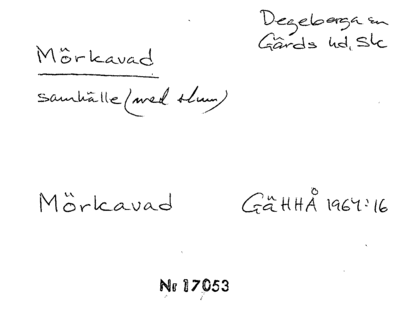 Degeberga sn
Gärds hd, Sk
Mörkavad
samhälle (med slum)
Mörkavad
GäHHÅ 1967:16
Nr 17053